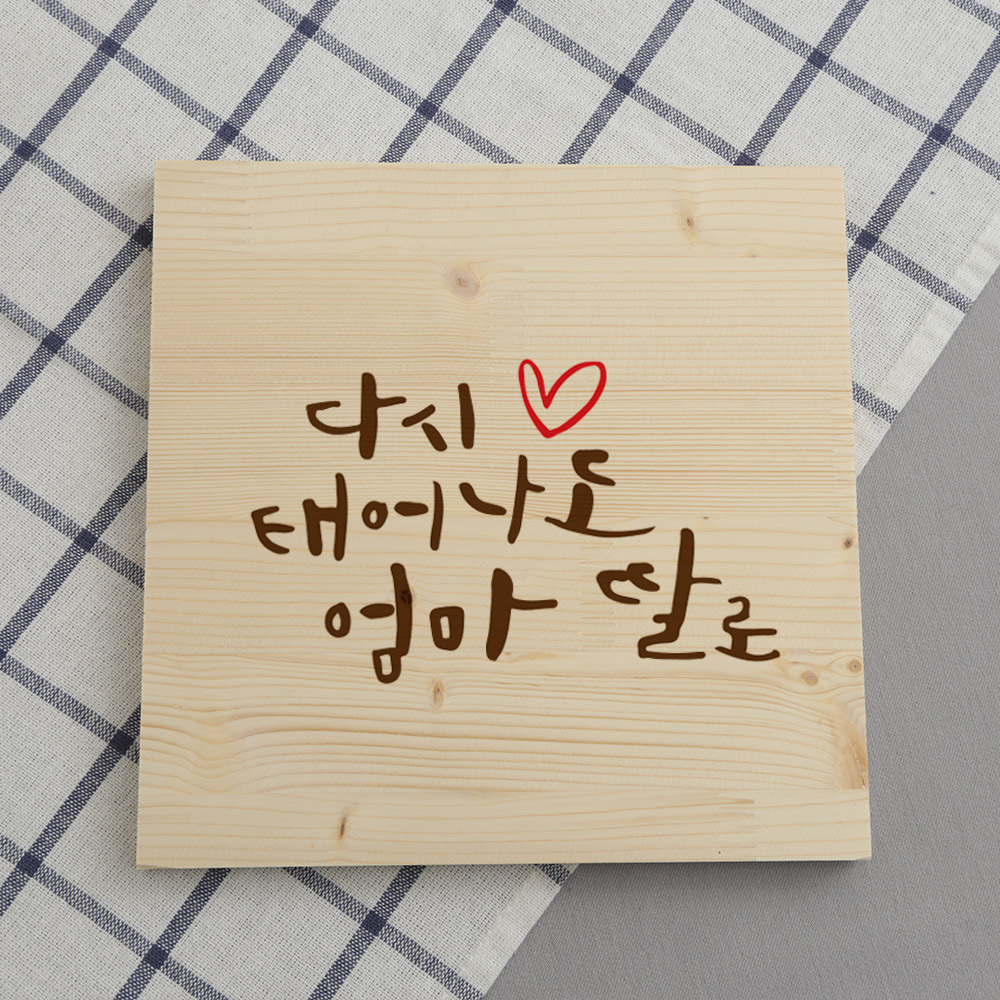 다시
태어나도
엄마 딸로